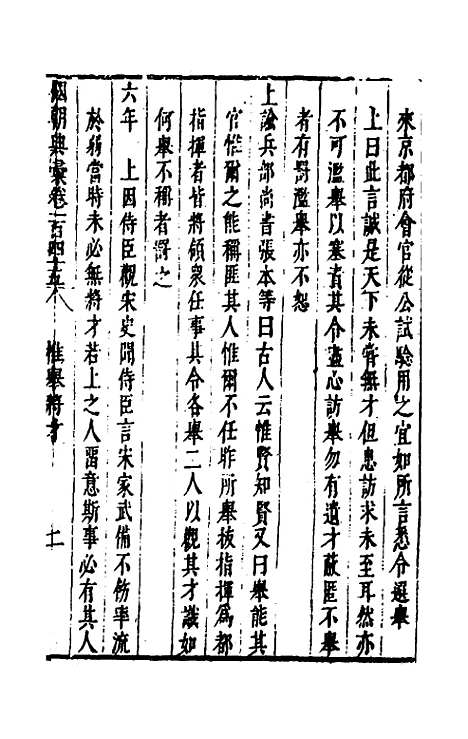 來京都府會官從公試驗用之宜如所言悉令選舉
上曰此言誠是天下未嘗無才但患訪求未至耳然亦
不可濫舉以塞責其令盡心訪舉勿有遺才蔽匿不舉
者有罰濫舉亦不恕
上諭兵部尚書張本等曰古人云惟賢知賢又曰舉能其
官惟爾之能稱匪其人惟爾不任昨所舉披指揮爲都
指揮者皆將領衆任事其令各舉二人以觀其才識如
何舉不稱者罰之
六年 上因侍臣觀宋史聞侍臣言宋家武備不飭率流
於弱當時未必無將才若上之人留意斯事必有其人
國朝典彙卷一百四十五八 推舉將才 十一